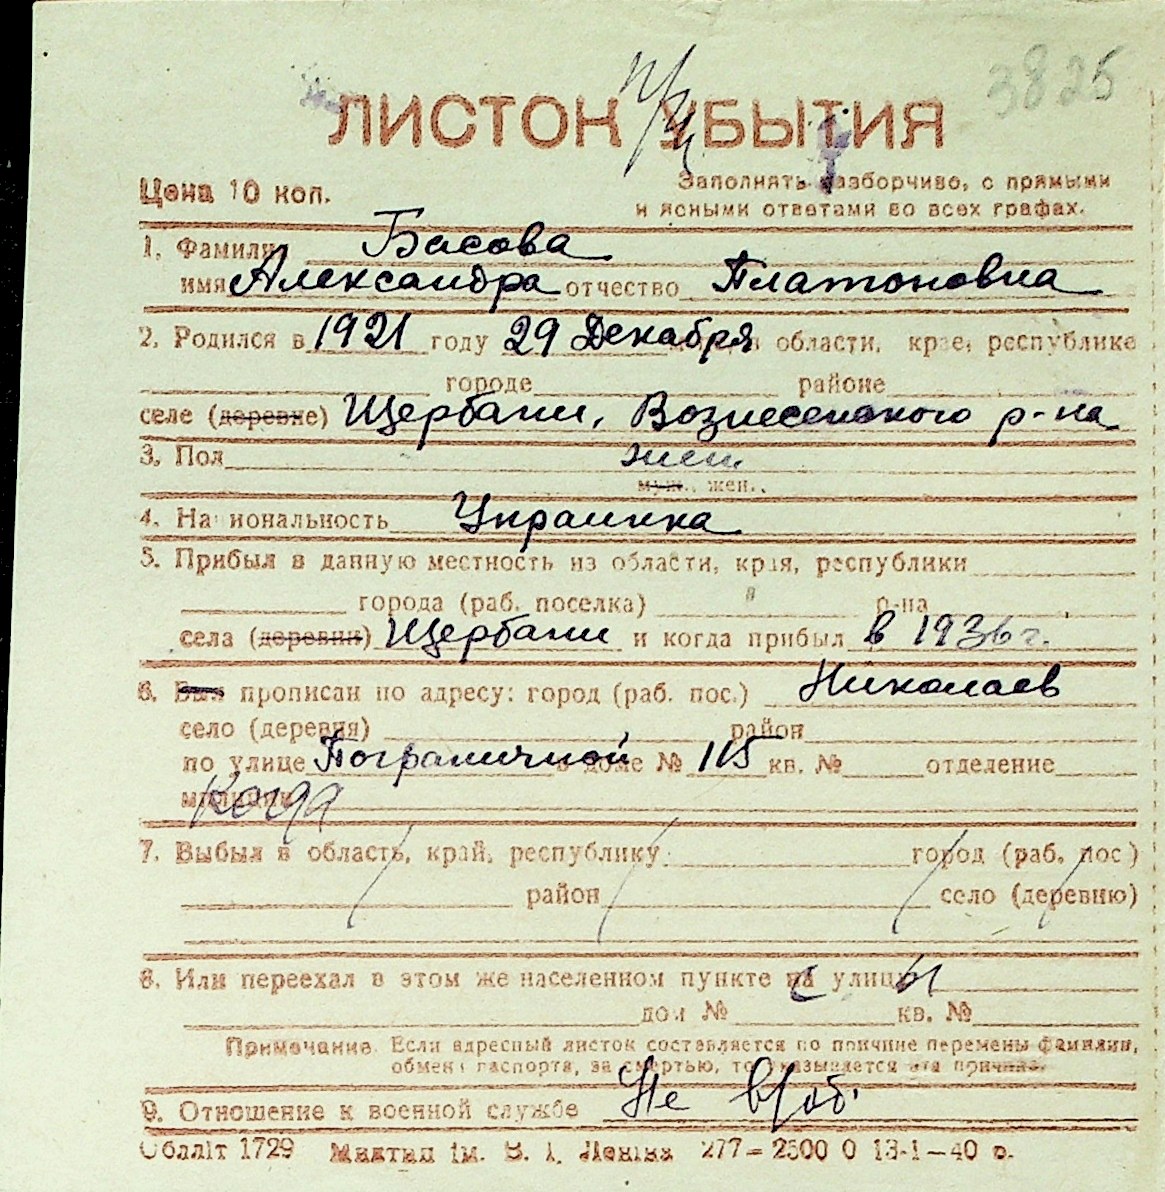 3825
ЛИСТОК УБЫТИЯ
Цена 10 коп.
Заполнять разборчиво, с прямыми
и ясными ответами во всех графах.
1. Фамилия Басова
имя Александра отчество Платоновна
2. Родился в 1921 году 29 Декабря области, крае, республике
городе районе
селе (деревне) Щербани, Вознесенского р-на
3. Пол жен.
муж., жен.
4. Национальность Украинка
5. Прибыл в данную местность из области, края, республики
города (раб. поселка) р-на
села (деревни) Щербани и когда прибыл в 1936 г.
6. Был прописан по адресу: город (раб. пос.) Николаев
село (деревня) район
по улице Пограничной в доме № 115 кв. № отделение
милиции когда
7. Выбыл в область, край, республику город (раб. пос)
район село (деревню)
8. Или переехал в этом же населенном пункте на с улицы
дом № кв. №
Примечание. Если адресный листок составляется по причине перемены фамилии,
обмена паспорта, за смертью, то указывается эта причина.
9. Отношение к военной службе Не в/об.
Обллiт 1729 iм. В. I. Ленiна 277—2500 0 13-1—40 р.